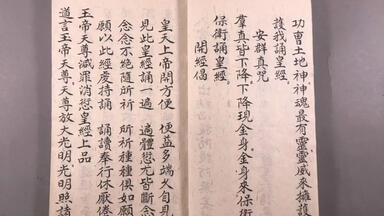 功曹土地神神魂最有靈靈威來擁護
護我誦皇經
安群真咒
羣真皆下降下降現金身金身來保衛
保衛誦皇經
開經偈
皇天上帝開方便　便益多端久自見
見此皇經誦一遍　遍體愆尤皆斷念
念念不絕隨所祈　所祈種種俱如願
願以此經度持誦　誦讀奉行休厭倦
玉帝天尊滅罪消愆皇經上品
道言玉帝天尊放大光明光明照諸